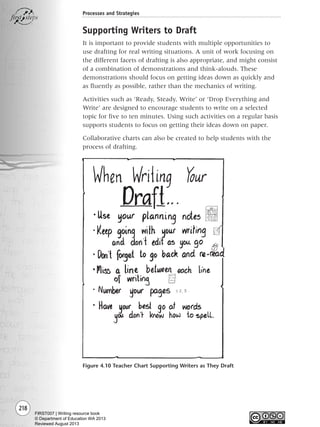 first steps
Processes and Strategies
Supporting Writers to Draft
It is important to provide students with multiple opportunities to
use drafting for real writing situations. A unit of work focusing on
the different facets of drafting is also appropriate, and might consist
of a combination of demonstrations and think-alouds. These
demonstrations should focus on getting ideas down as quickly and
as fluently as possible, rather than the mechanics of writing.
Activities such as ‘Ready, Steady, Write’ or ‘Drop Everything and
Write’ are designed to encourage students to write on a selected
topic for five to ten minutes. Using such activities on a regular basis
supports students to focus on getting their ideas down on paper.
Collaborative charts can also be created to help students with the
process of drafting.
When Writing Your
Draft...
• Use your planning notes
• Keep going with your writing
and don't edit as you go
• Don't forget to go back and re-read
• Miss a line between each line
of writing
• Number your pages
• Have your best go at words
you don't know how to spell.
Figure 4.10 Teacher Chart Supporting Writers as They Draft
218
FIRST007 | Writing resource book
© Department of Education WA 2013
Reviewed August 2013